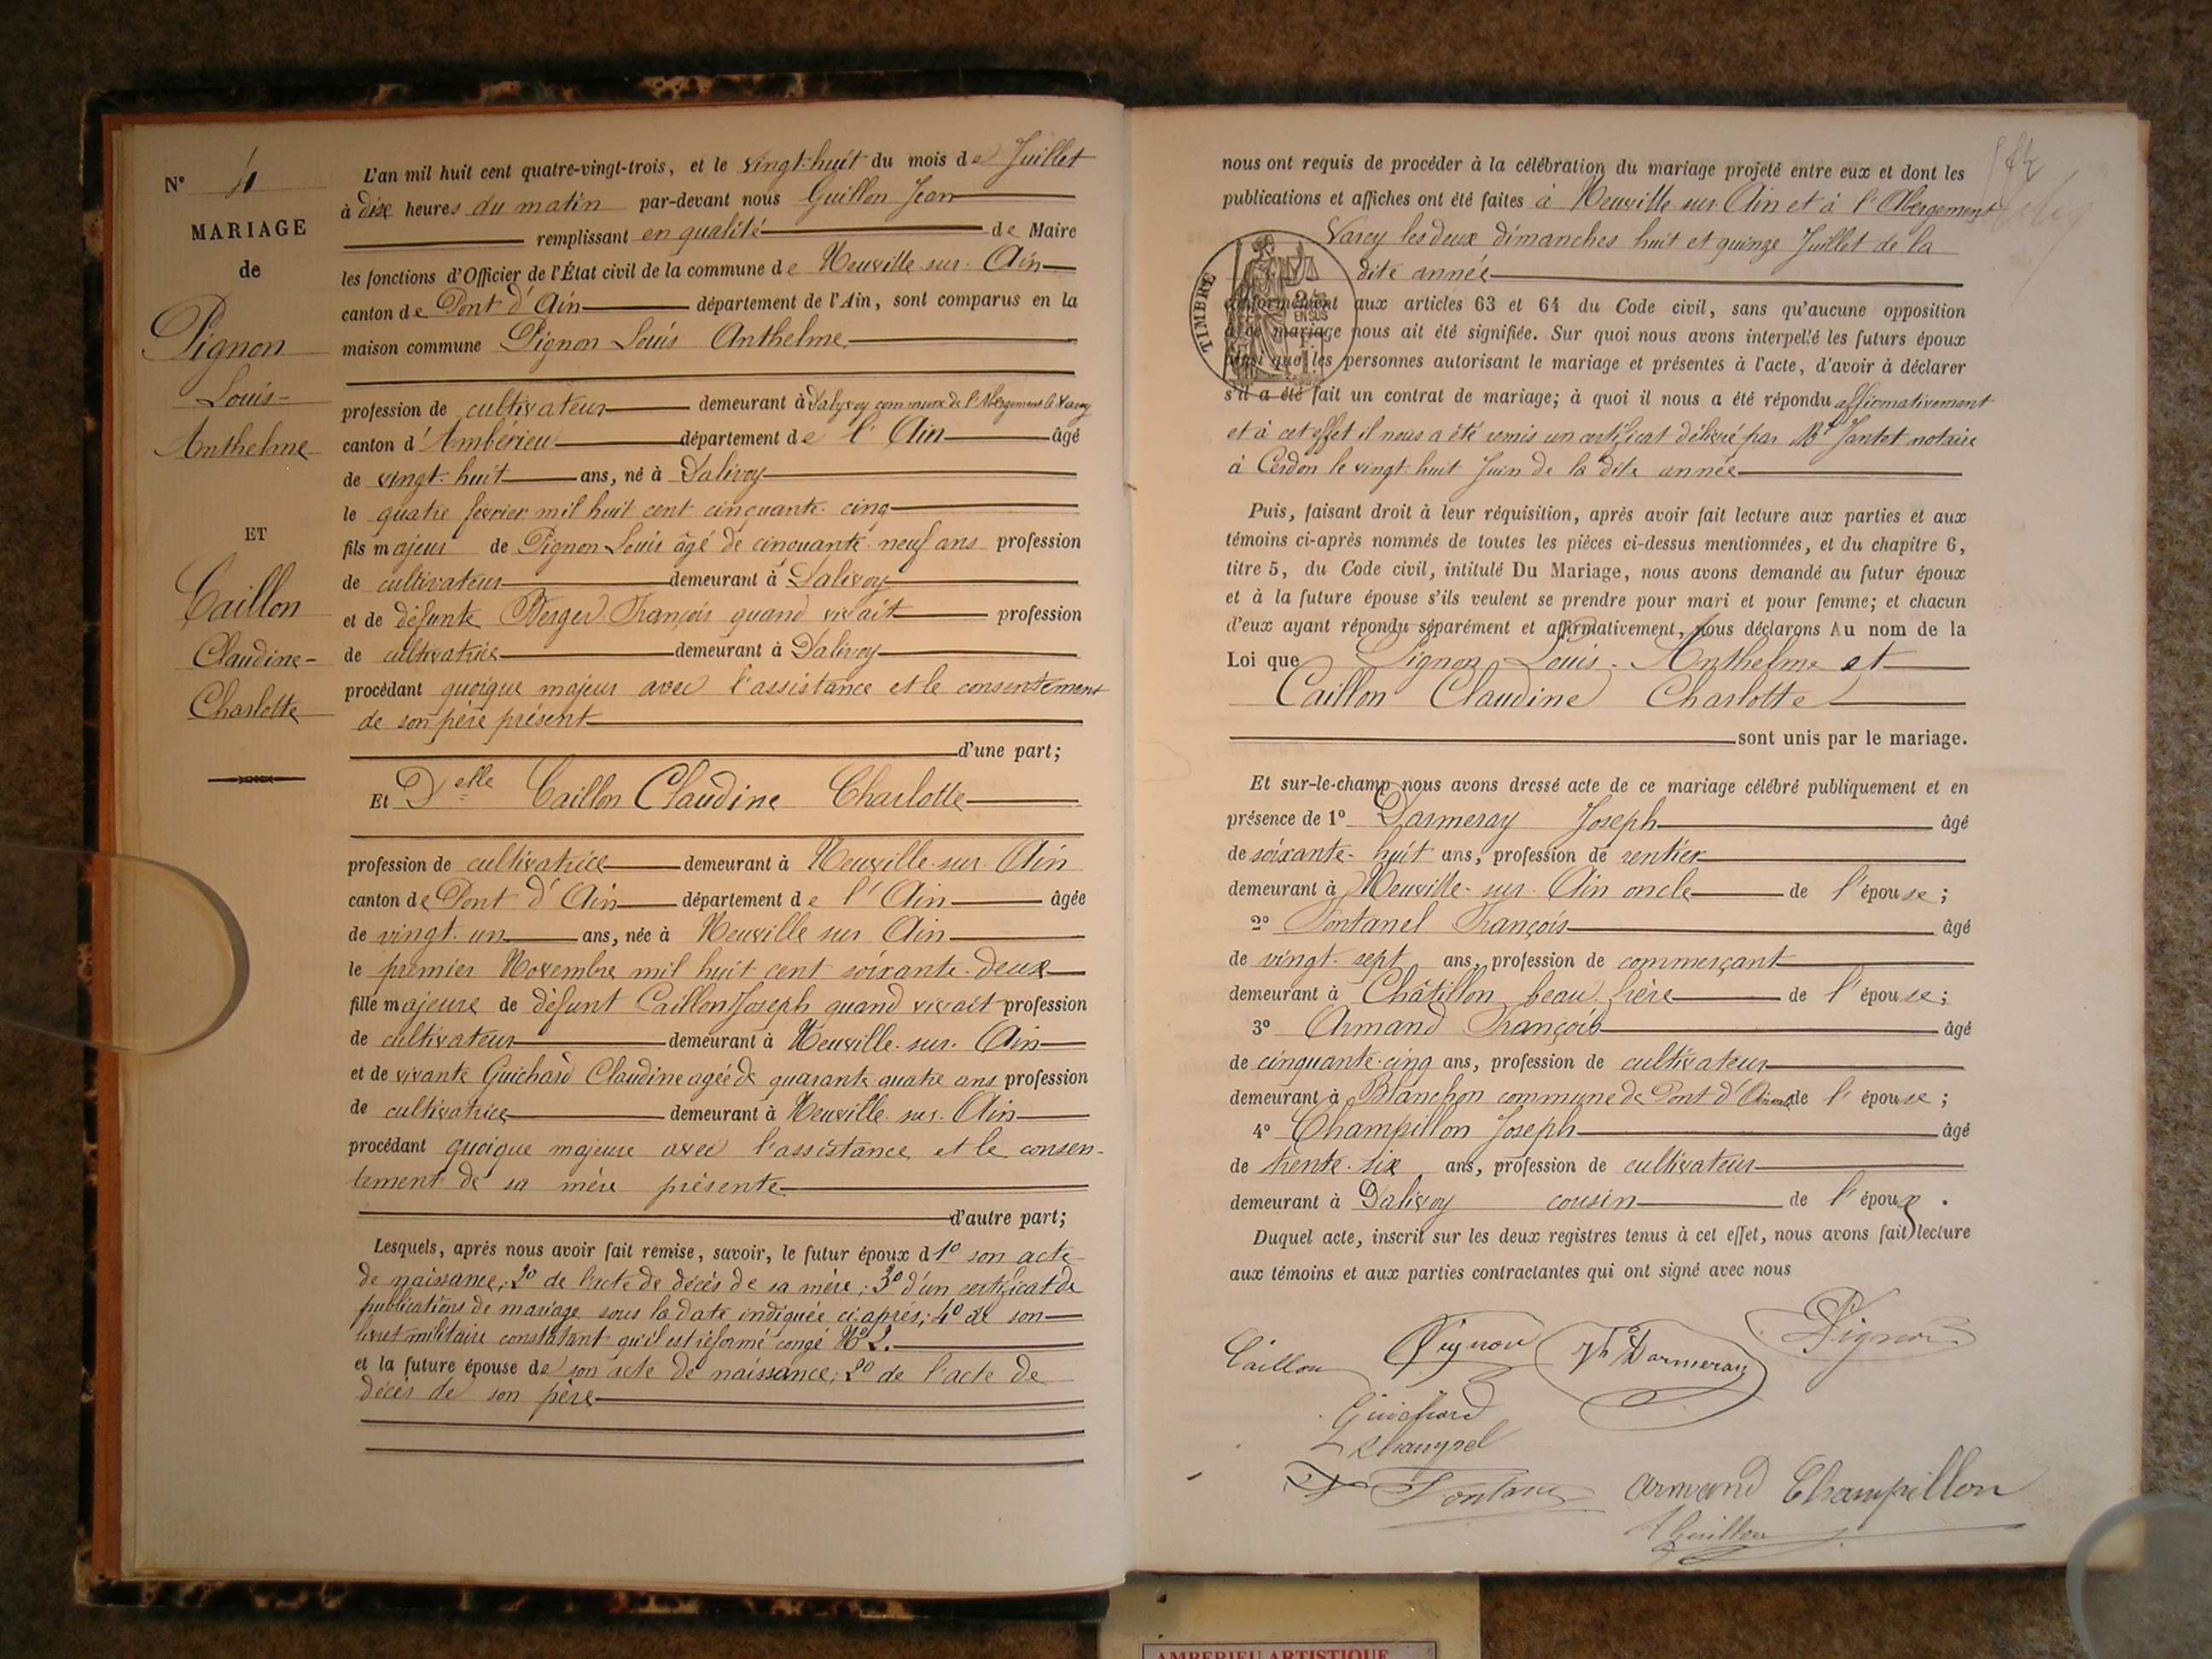 N° 4
MARIAGE
de
Pignon
Louis-
Anthelme
ET
Caillon
Claudine-
Charlotte
L'an mil huit cent quatre-vingt-trois, et le vingt-huit du mois de Juillet
à dix heures du matin par-devant nous Guillon Jean
remplissant en qualité de Maire
les fonctions d'Officier de l'État civil de la commune de Neuville sur Ain
canton de Pont d'Ain département de l'Ain, sont comparus en la
maison commune Pignon Louis Anthelme
profession de cultivateur demeurant à Dalivoy commune de l'Abergement le Varey
canton d'Ambérieu département de l'Ain âgé
de vingt-huit ans, né à Dalivoy
le quatre février mil huit cent cinquante-cinq
fils majeur de Pignon Louis âgé de cinquante-neuf ans profession
de cultivateur demeurant à Dalivoy
et de défunte Berger François quand vivait profession
de cultivatrice demeurant à Dalivoy
procédant quoique majeur avec l'assistance et le consentement
de son père présent
d'une part;
Et Delle Caillon Claudine Charlotte
profession de cultivatrice demeurant à Neuville-sur-Ain
canton de Pont d'Ain département de l'Ain âgée
de vingt-un ans, née à Neuville sur Ain
le premier Novembre mil huit cent soixante-deux
fille majeure de défunt Caillon Joseph quand vivait profession
de cultivateur demeurant à Neuville-sur-Ain
et de vivante Guichard Claudine agée de quarante quatre ans profession
de cultivatrice demeurant à Neuville-sur-Ain
procédant quoique majeure avec l'assistance et le consen-
tement de sa mère présente
d'autre part;
Lesquels, après nous avoir fait remise, savoir, le futur époux d 1° son acte
de naissance; 2° de l'acte de décès de sa mère; 3° d'un certificat de
publications de mariage sous la date indiquée ci-après; 4° de son
livret militaire constatant qu'il est réformé congé N° 2.
et la future épouse de son acte de naissance; 2° de l'acte de
décès de son père
nous ont requis de procéder à la célébration du mariage projeté entre eux et dont les
publications et affiches ont été faites à Neuville sur Ain et à l'Abergement
Varey les deux dimanches huit et quinze Juillet de la
dite année
TIMBRE
conformément aux articles 63 et 64 du Code civil, sans qu'aucune opposition
à ce mariage nous ait été signifiée. Sur quoi nous avons interpellé les futurs époux
ainsi que les personnes autorisant le mariage et présentes à l'acte, d'avoir à déclarer
s'il a été fait un contrat de mariage; à quoi il nous a été répondu affirmativement
et à cet effet il nous a été remis un certificat délivré par Mt Jantet notaire
à Cerdon le vingt-huit Juin de la dite année
Puis, faisant droit à leur réquisition, après avoir fait lecture aux parties et aux
témoins ci-après nommés de toutes les pièces ci-dessus mentionnées, et du chapitre 6,
titre 5, du Code civil, intitulé Du Mariage, nous avons demandé au futur époux
et à la future épouse s'ils veulent se prendre pour mari et pour femme; et chacun
d'eux ayant répondu séparément et affirmativement, nous déclarons Au nom de la
Loi que Pignon Louis-Anthelme et
Caillon Claudine Charlotte
sont unis par le mariage.
Et sur-le-champ nous avons dressé acte de ce mariage célébré publiquement et en
présence de 1° Darmeray Joseph âgé
de soixante-huit ans, profession de rentier
demeurant à Neuville-sur-Ain oncle de l'épouse;
2° Fontanel François âgé
de vingt-sept ans, profession de commerçant
demeurant à Châtillon beau frère de l'épouse;
3° Armand François âgé
de cinquante-cinq ans, profession de cultivateur
demeurant à Blanchon commune de Pont d'Ain de l'épouse;
4° Champillon Joseph âgé
de trente-six ans, profession de cultivateur
demeurant à Dalivoy cousin de l'époux.
Duquel acte, inscrit sur les deux registres tenus à cet effet, nous avons fait lecture
aux témoins et aux parties contractantes qui ont signé avec nous
Caillon Pignon Jh Darmeray Pignon
Guichard
Fontanel Armand Champillon
Guillon
AMBERIEU ARTISTIQUE